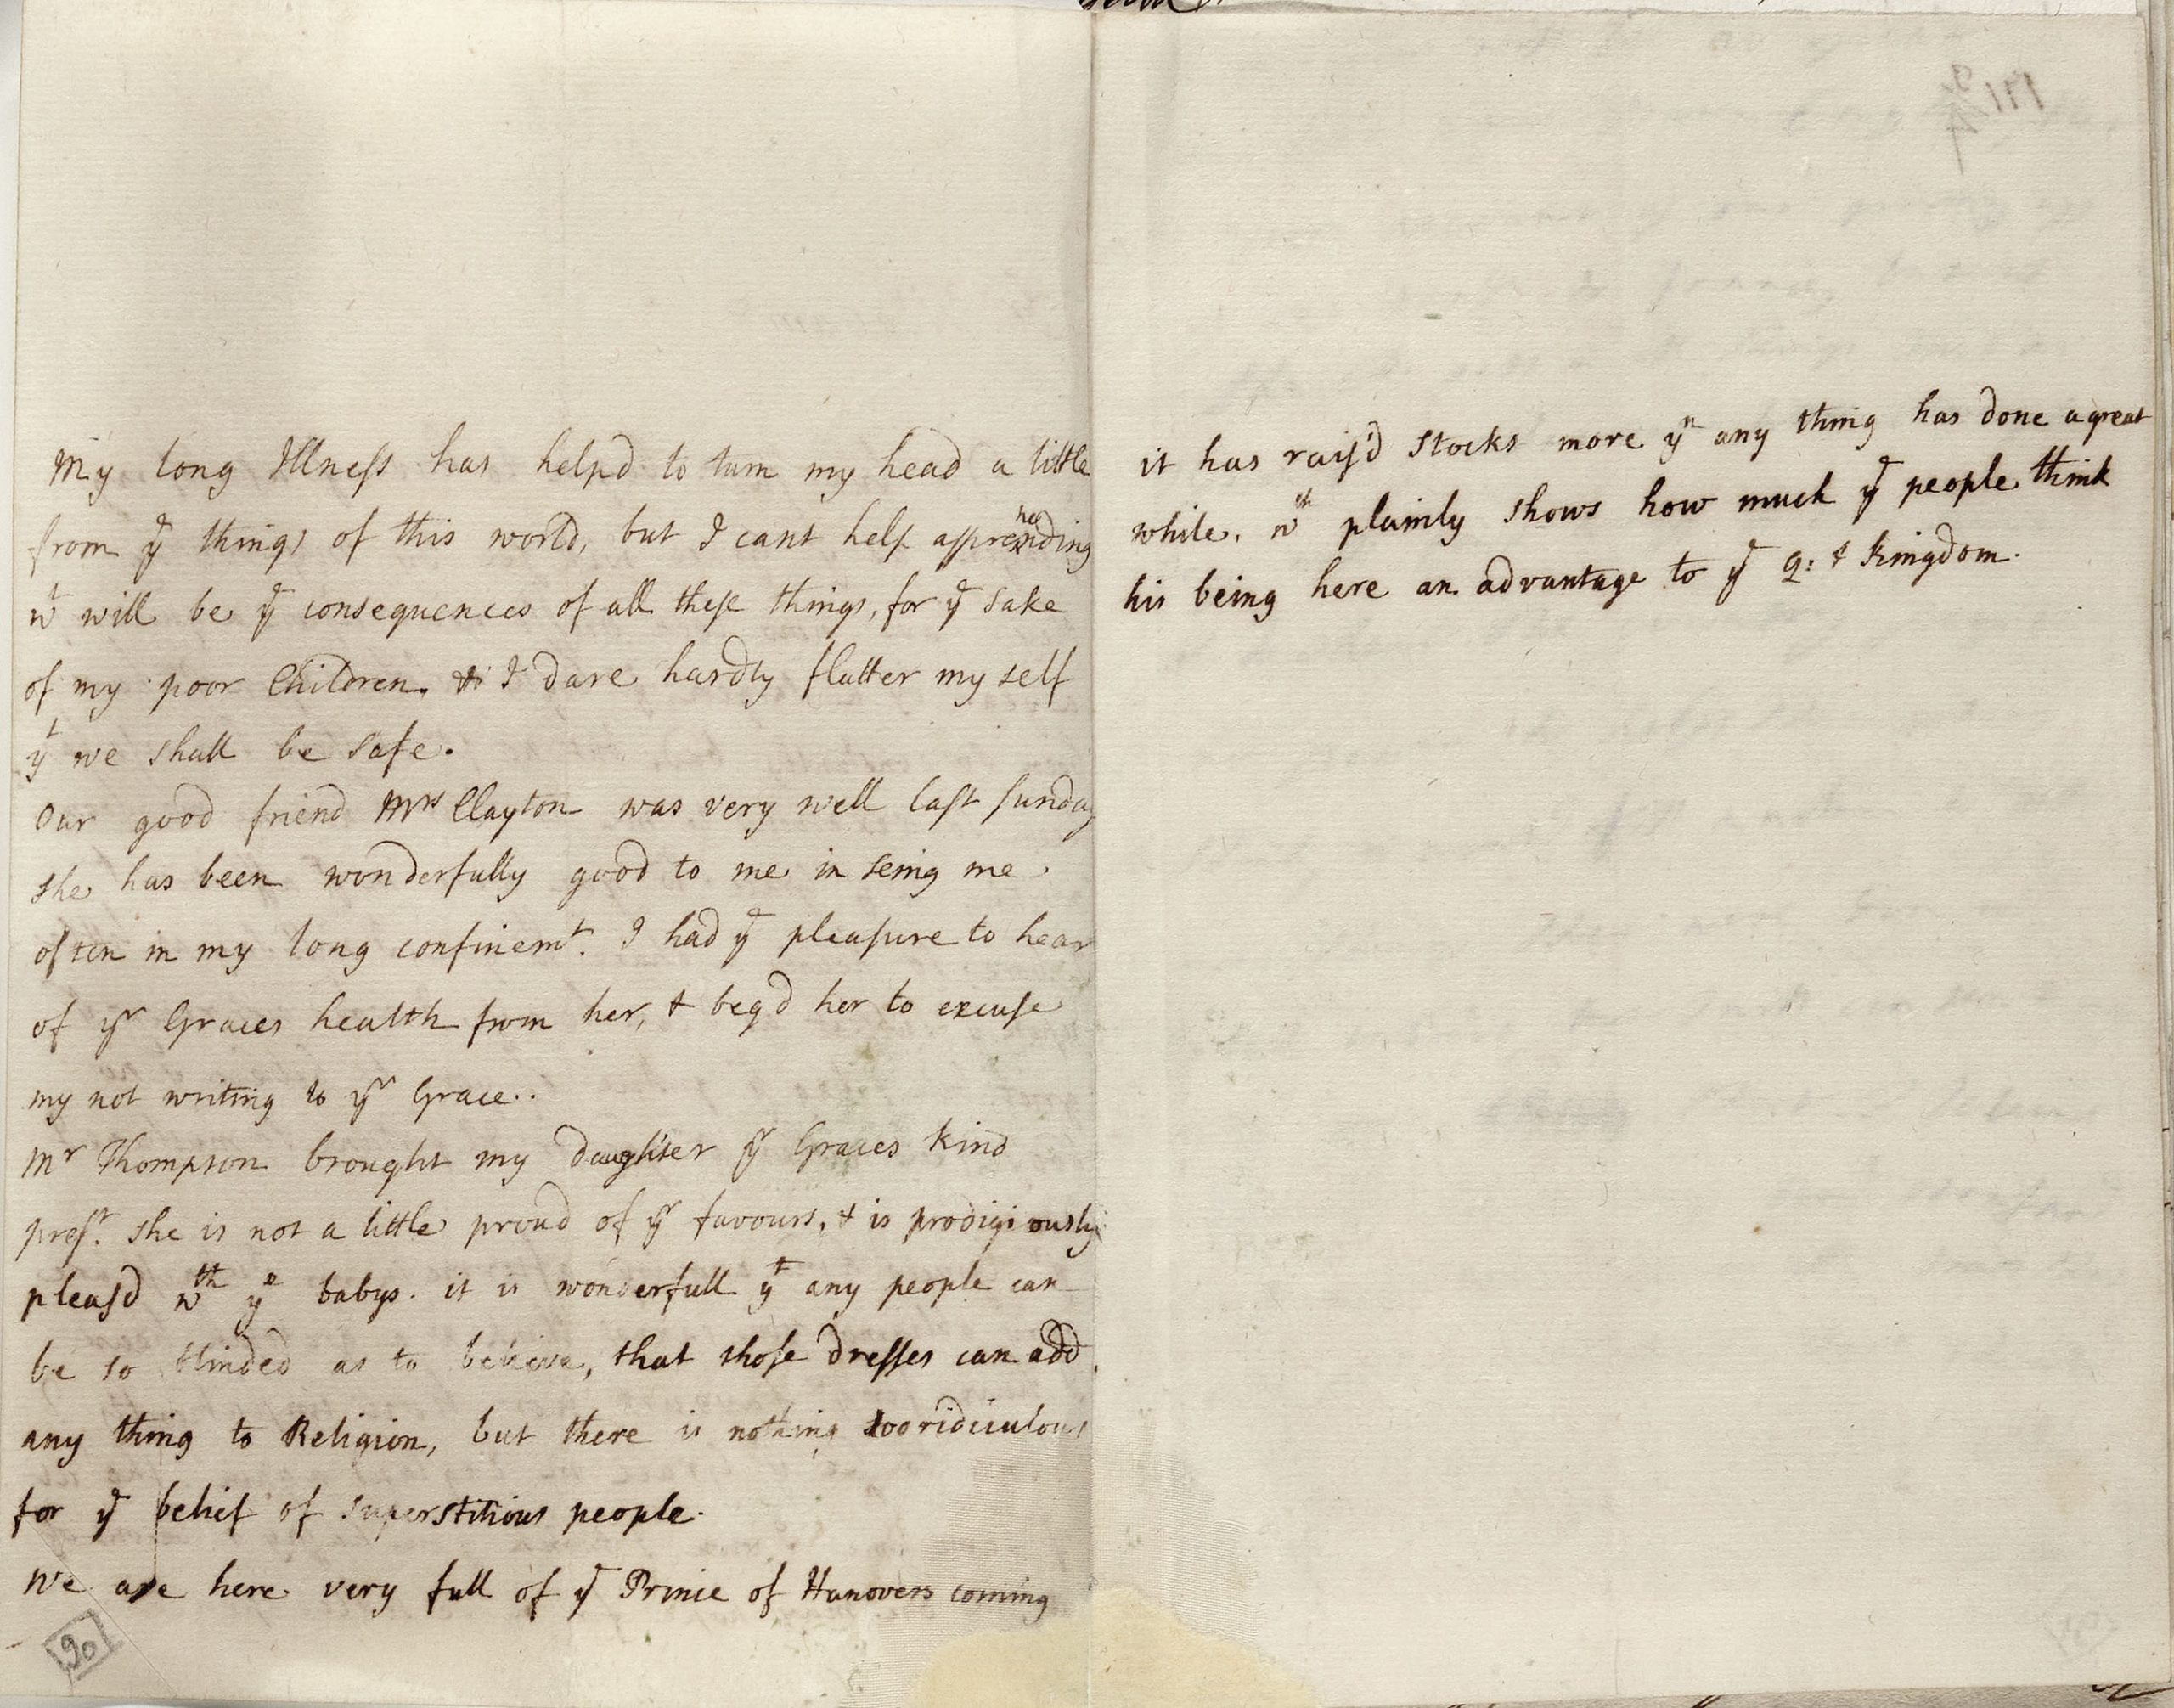 My long Illness has helpd to turn my head a little
from ye things of this world, but I cant help apprehending
wt will be ye consequences of all these things, for ye sake
of my poor Children, I dare hardly flatter my self
yt we shall be safe.
Our good friend Mrs Clayton was very well last sunday
she has been wonderfully good to me in seing me
often in my long confinemt. I had ye pleasure to hear
of yr Graces health from her, & begd her to excuse
my not writing to yr Grace..
Mr Thompson brought my daughter yr Graces kind
prest. she is not a little proud of yr favours, & is prodigiously
pleasd wth ye babys. it is wonderfull yt any people can
be so blinded as to beleive, that those dresses can add
any thing to Religion, but there is nothing too ridiculous
for ye belief of superstitious people.
We are here very full of ye Prince of Hanovers coming
90
it has rais'd stocks more yn any thing has done a great
while. wch plainly shows how much ye people think
his being here an advantage to ye Q: & Kingdom.